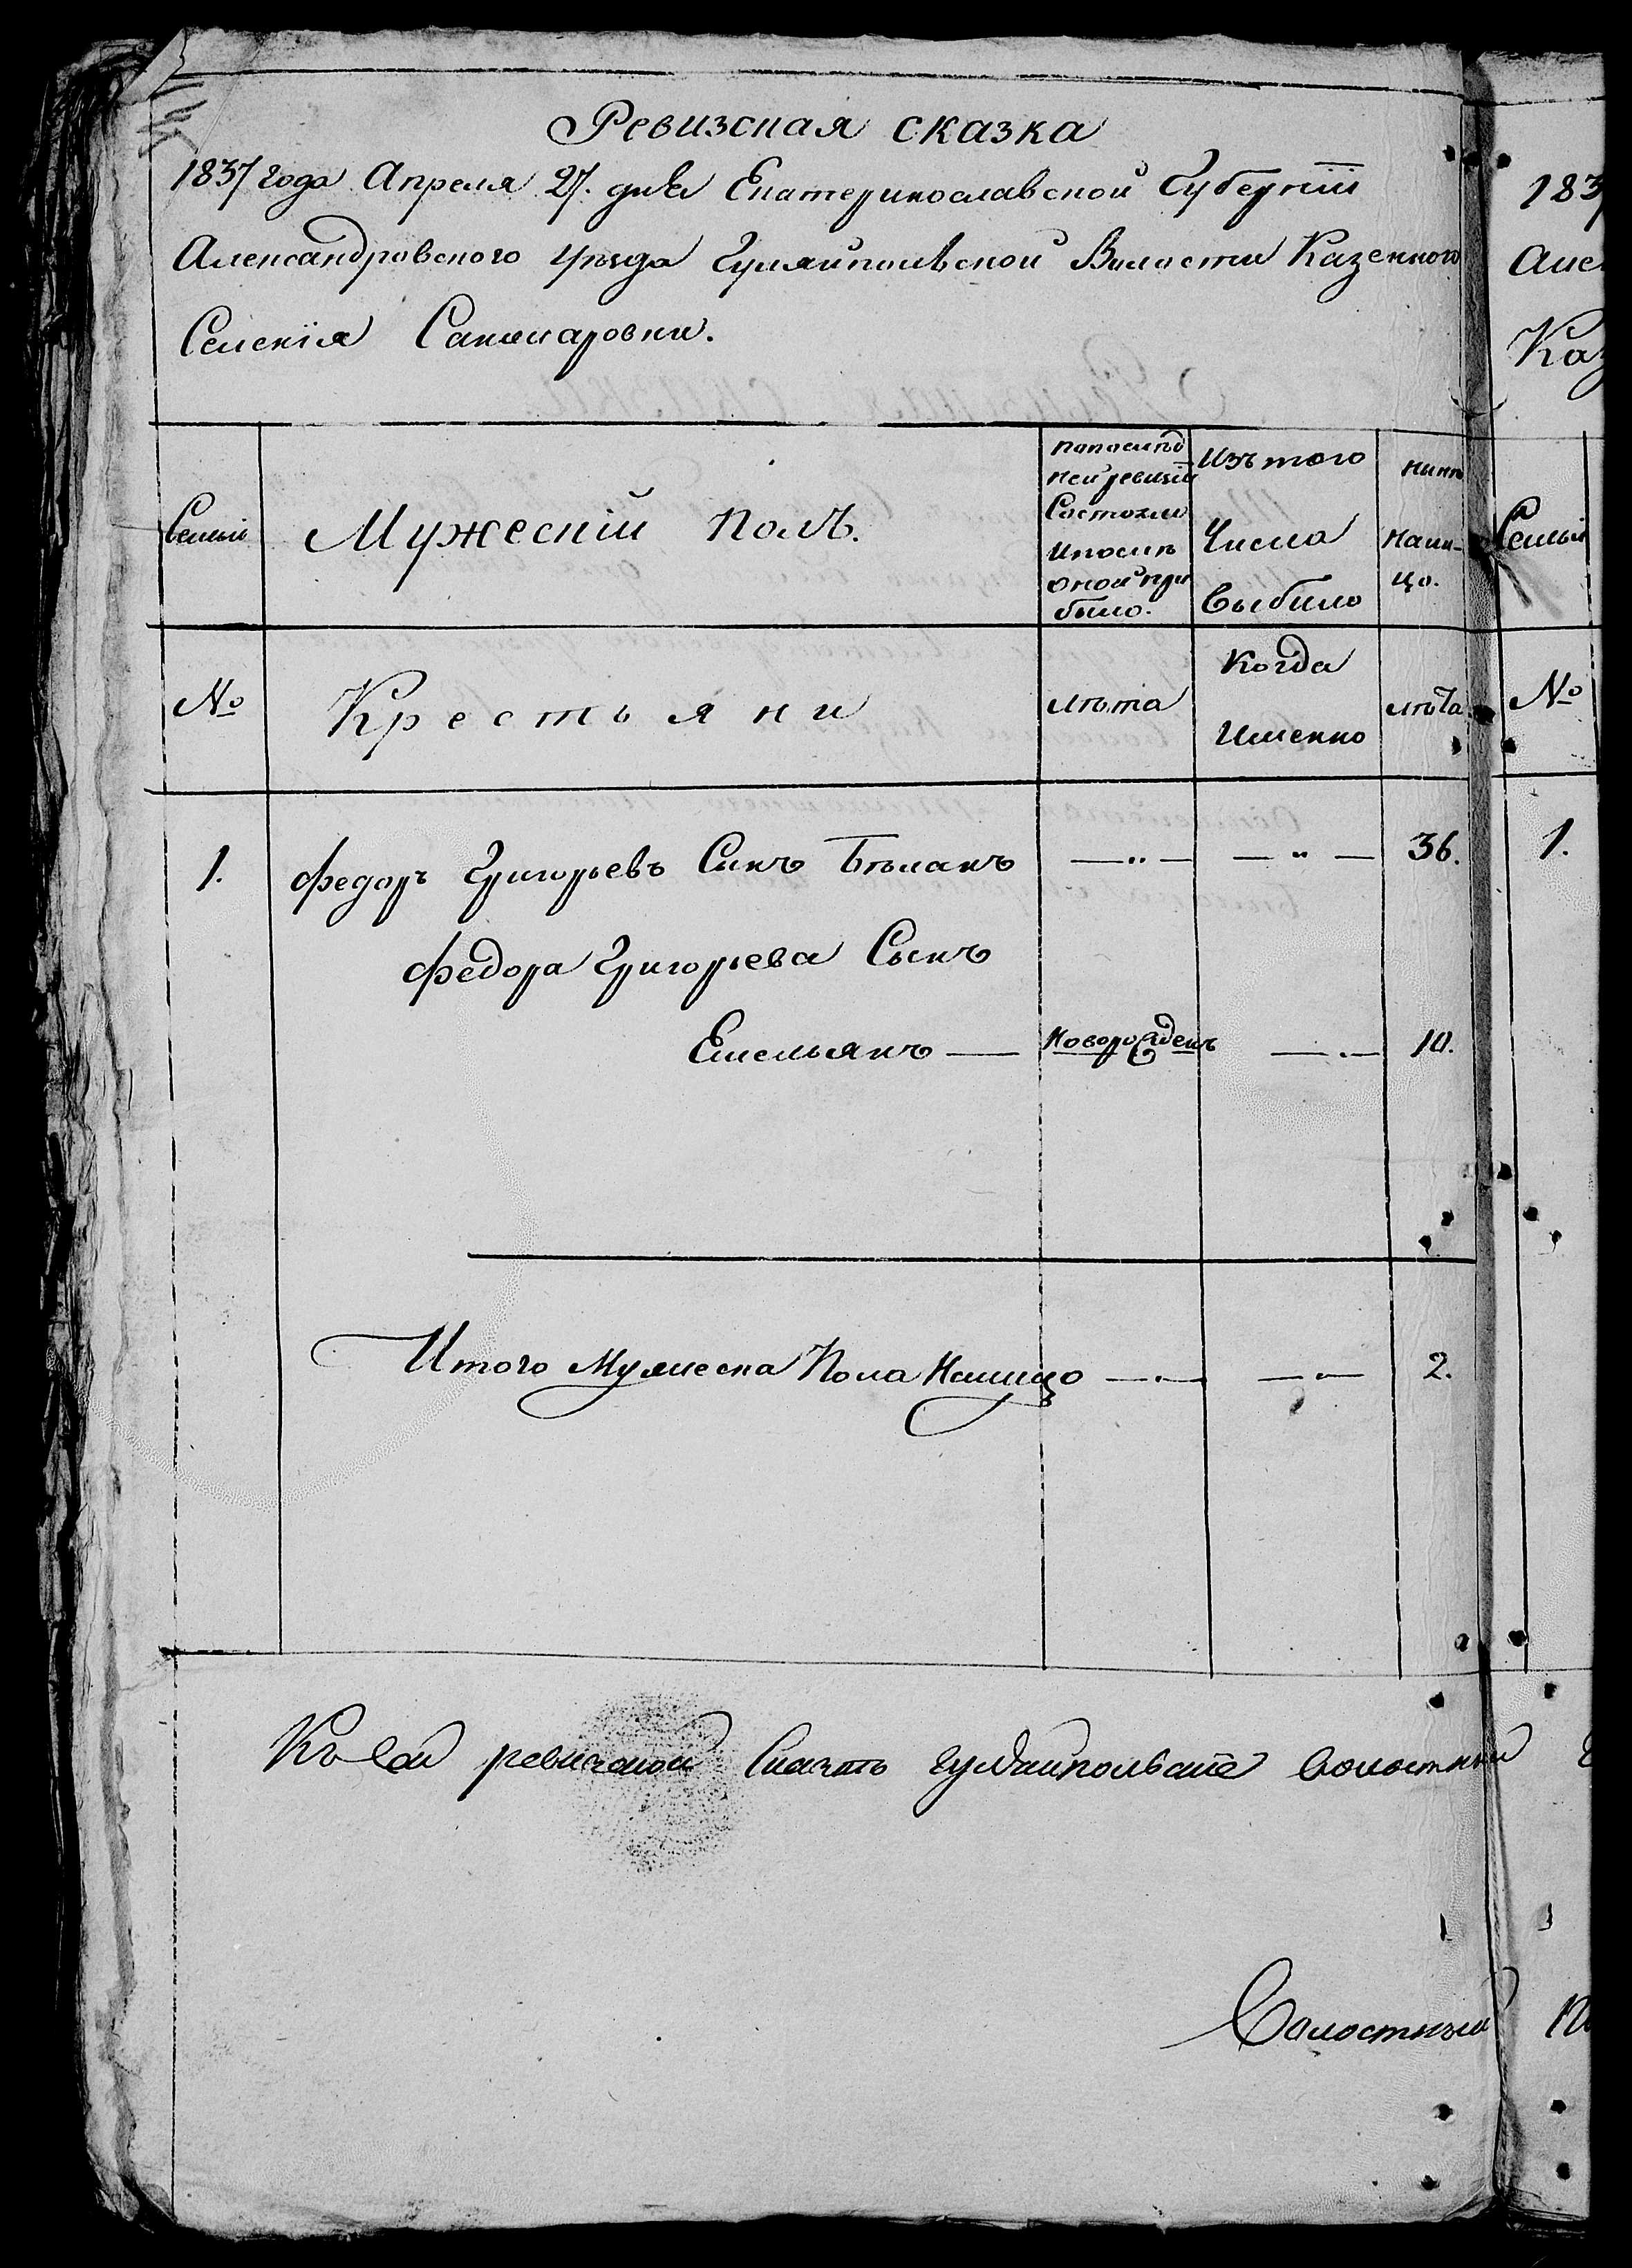 Ревизская сказка
1837 года Апреля 27. дня Екатеринославской Губернiи
Александровского Уѣзда Гуляйпольской Волости Казенного
Селенiя Санжаровки.
Семьи
Мужескiй полъ.
Попослѣд
ней ревизiи
Состояли
ипослѣ
оной при
было.
Изъ того
Числа
Выбыло
Нынѣ
Нали-
цо.
№
Крестьяни
лѣта
Когда
Именно
лѣта
1.
Федоръ Григорьевъ Сынъ Бѣланъ
— " —
— " —
36.
Федора Григорьева Сынъ
Емельянъ —
новорожденъ
— " —
10.
Итого Мужеска Пола Налицо
— " —
— " —
2.
Къ сей ревизской сказкѣ гуляйпольскiй волостный
Волостный
183
Алек
Каз
Семьи
№
1.